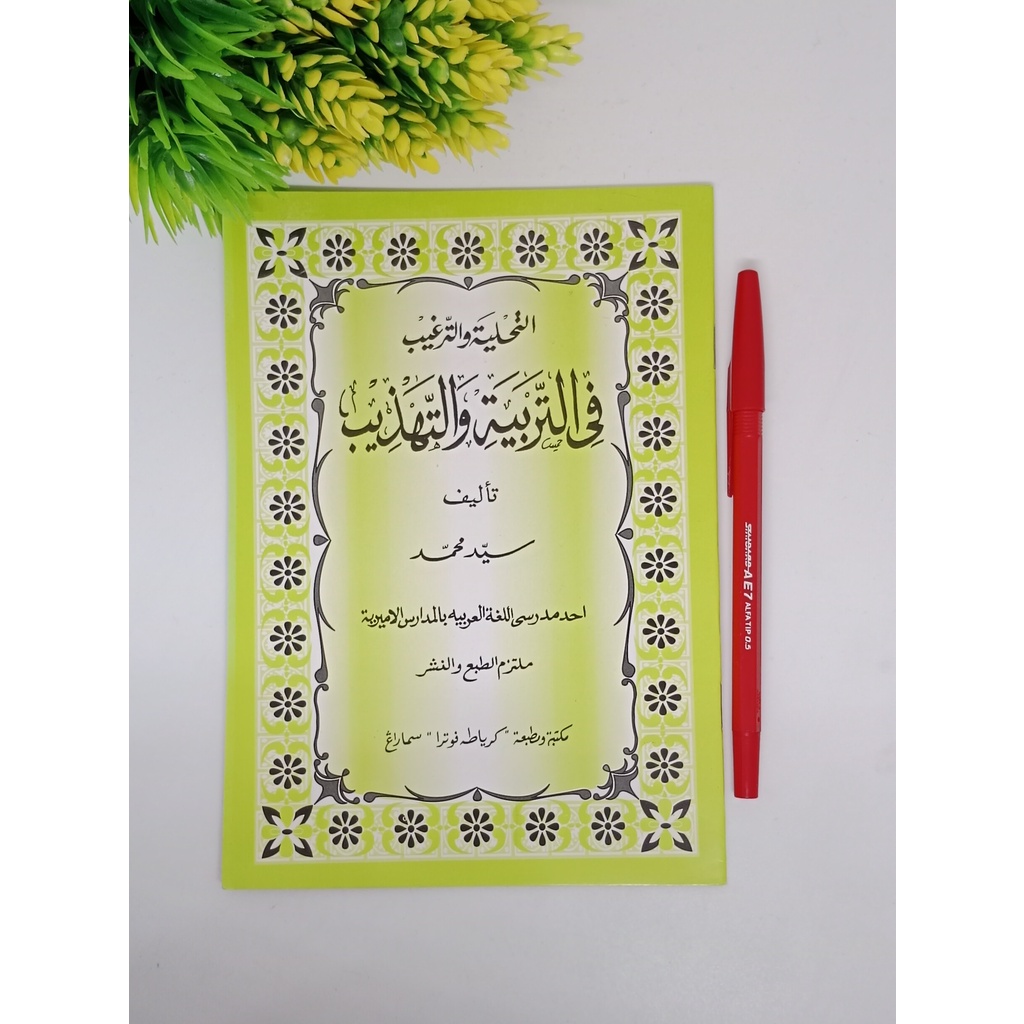 التحلية والترغيب
فِى التَّرْبِيَةِ وَالتَّهْذِيْبِ
تأليف
سيّد محمّد
احد مدرسى اللغة العربيه بالمدارس الاميرية
ملتزم الطبع والنشر
مكتبة ومطبعة "كرياطه فوترا" سماراڠ
STANDARD AE7 ALFA TIP 0.5